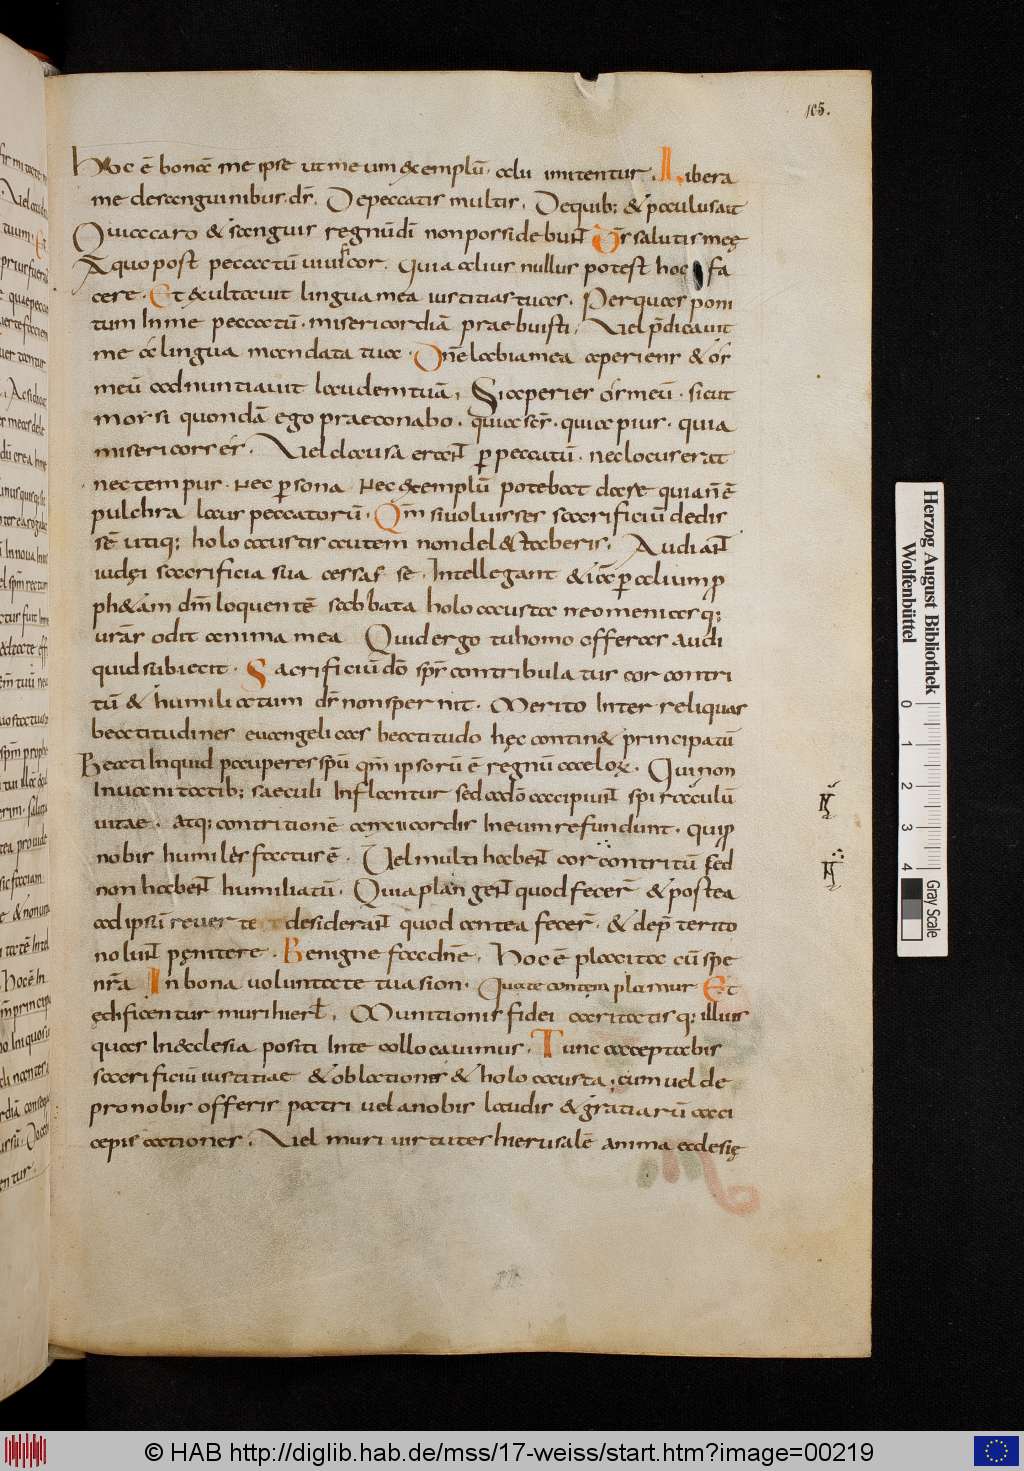 105.
Hoc ē bonā me ipse ut meum exemplū. alii imitentur. Libera
me desanguinibus. ds̄. Depeccatis multis. Dequib; & paulus ait
Quia caro & sanguis regnū dī non possidebun̄t Ds̄ salutis meę
A quo post peccatū vivi cor. Quia alius nullus potest hoc fa
cere. Et exultavit lingua mea iustitias tuas. Per quas peni
tum Inme peccatū. misericordiā praebuisti. Vel p̄dicavit
me & lingua mandata tua. Dn̄e labia mea aperiens & ós
meū adnuntiavit laudem tuā, Si aperies ós meū. sicut
morsi quondā ego praeconabo. quia ser̄. quia pius. quia
misericors es. Vel clausa eran̄t p̱ peccatū. nec locus erat
nec tempus. Nec p̱sona Nec exemplū potebat darse quia n̄ ē
pulchra laus peccatorū. Qm̄ si voluisses sacrificiū dedis
sē utiq; holocaustis autem non delectaberis. Audian̄t
iudęi sacrificia sua cessasse. Intellegant & iā p̱ alium p̱
ph&am dm̄ loquentē sabbata holocausta neomenias q;
urās odit anima mea Quid ergo tu homo offeras audi
quid subiecit. Sacrificiū dō sps̄ contribulatus cor contri
tū & humiliatum ds̄ non spernit. Merito Inter reliquas
beatitudines euangelicas beatitudo hęc contin& principatū
Beati Inquid pauperes spū qm̄ ipsorū ē regnū caeloꝝ. Qui non
Invanitatib; saeculi Inflantur sed ad ō accipiun̄t spiraculū
vitae. Atq; contritionē cordis In eum refundunt. qui p̱
nobis humiles factus ē. Vel multi haben̄t cor contritū sed
non haben̄t humiliatū. Quia plangen̄t quod fecer̄ & postea
ad ipsū reverte desideran̄t quod antea fecer̄. & dep̄terito
nolun̄t pęnitere. Benigne fac dn̄e. Hoc ē placita cū spe
nr̄a In bona voluntate tua sion. Et
ędificentur muri hierl̄. Munitionis fidei caritatisq; illius
quas In ecclesia positi Inte collocavimus. Tunc acceptabis
sacrificiū iustitiae & oblationis & holocausta; cum vel de
pro nobis offeris patri vel a nobis laudis & gratiarū acci
cepis actiones. Vel muri virtutes hierusalē anima ecclesię
Herzog August Bibliothek
Wolfenbüttel
0 1 2 3 4
Gray Scale
© HAB http://diglib.hab.de/mss/17-weiss/start.htm?image=00219